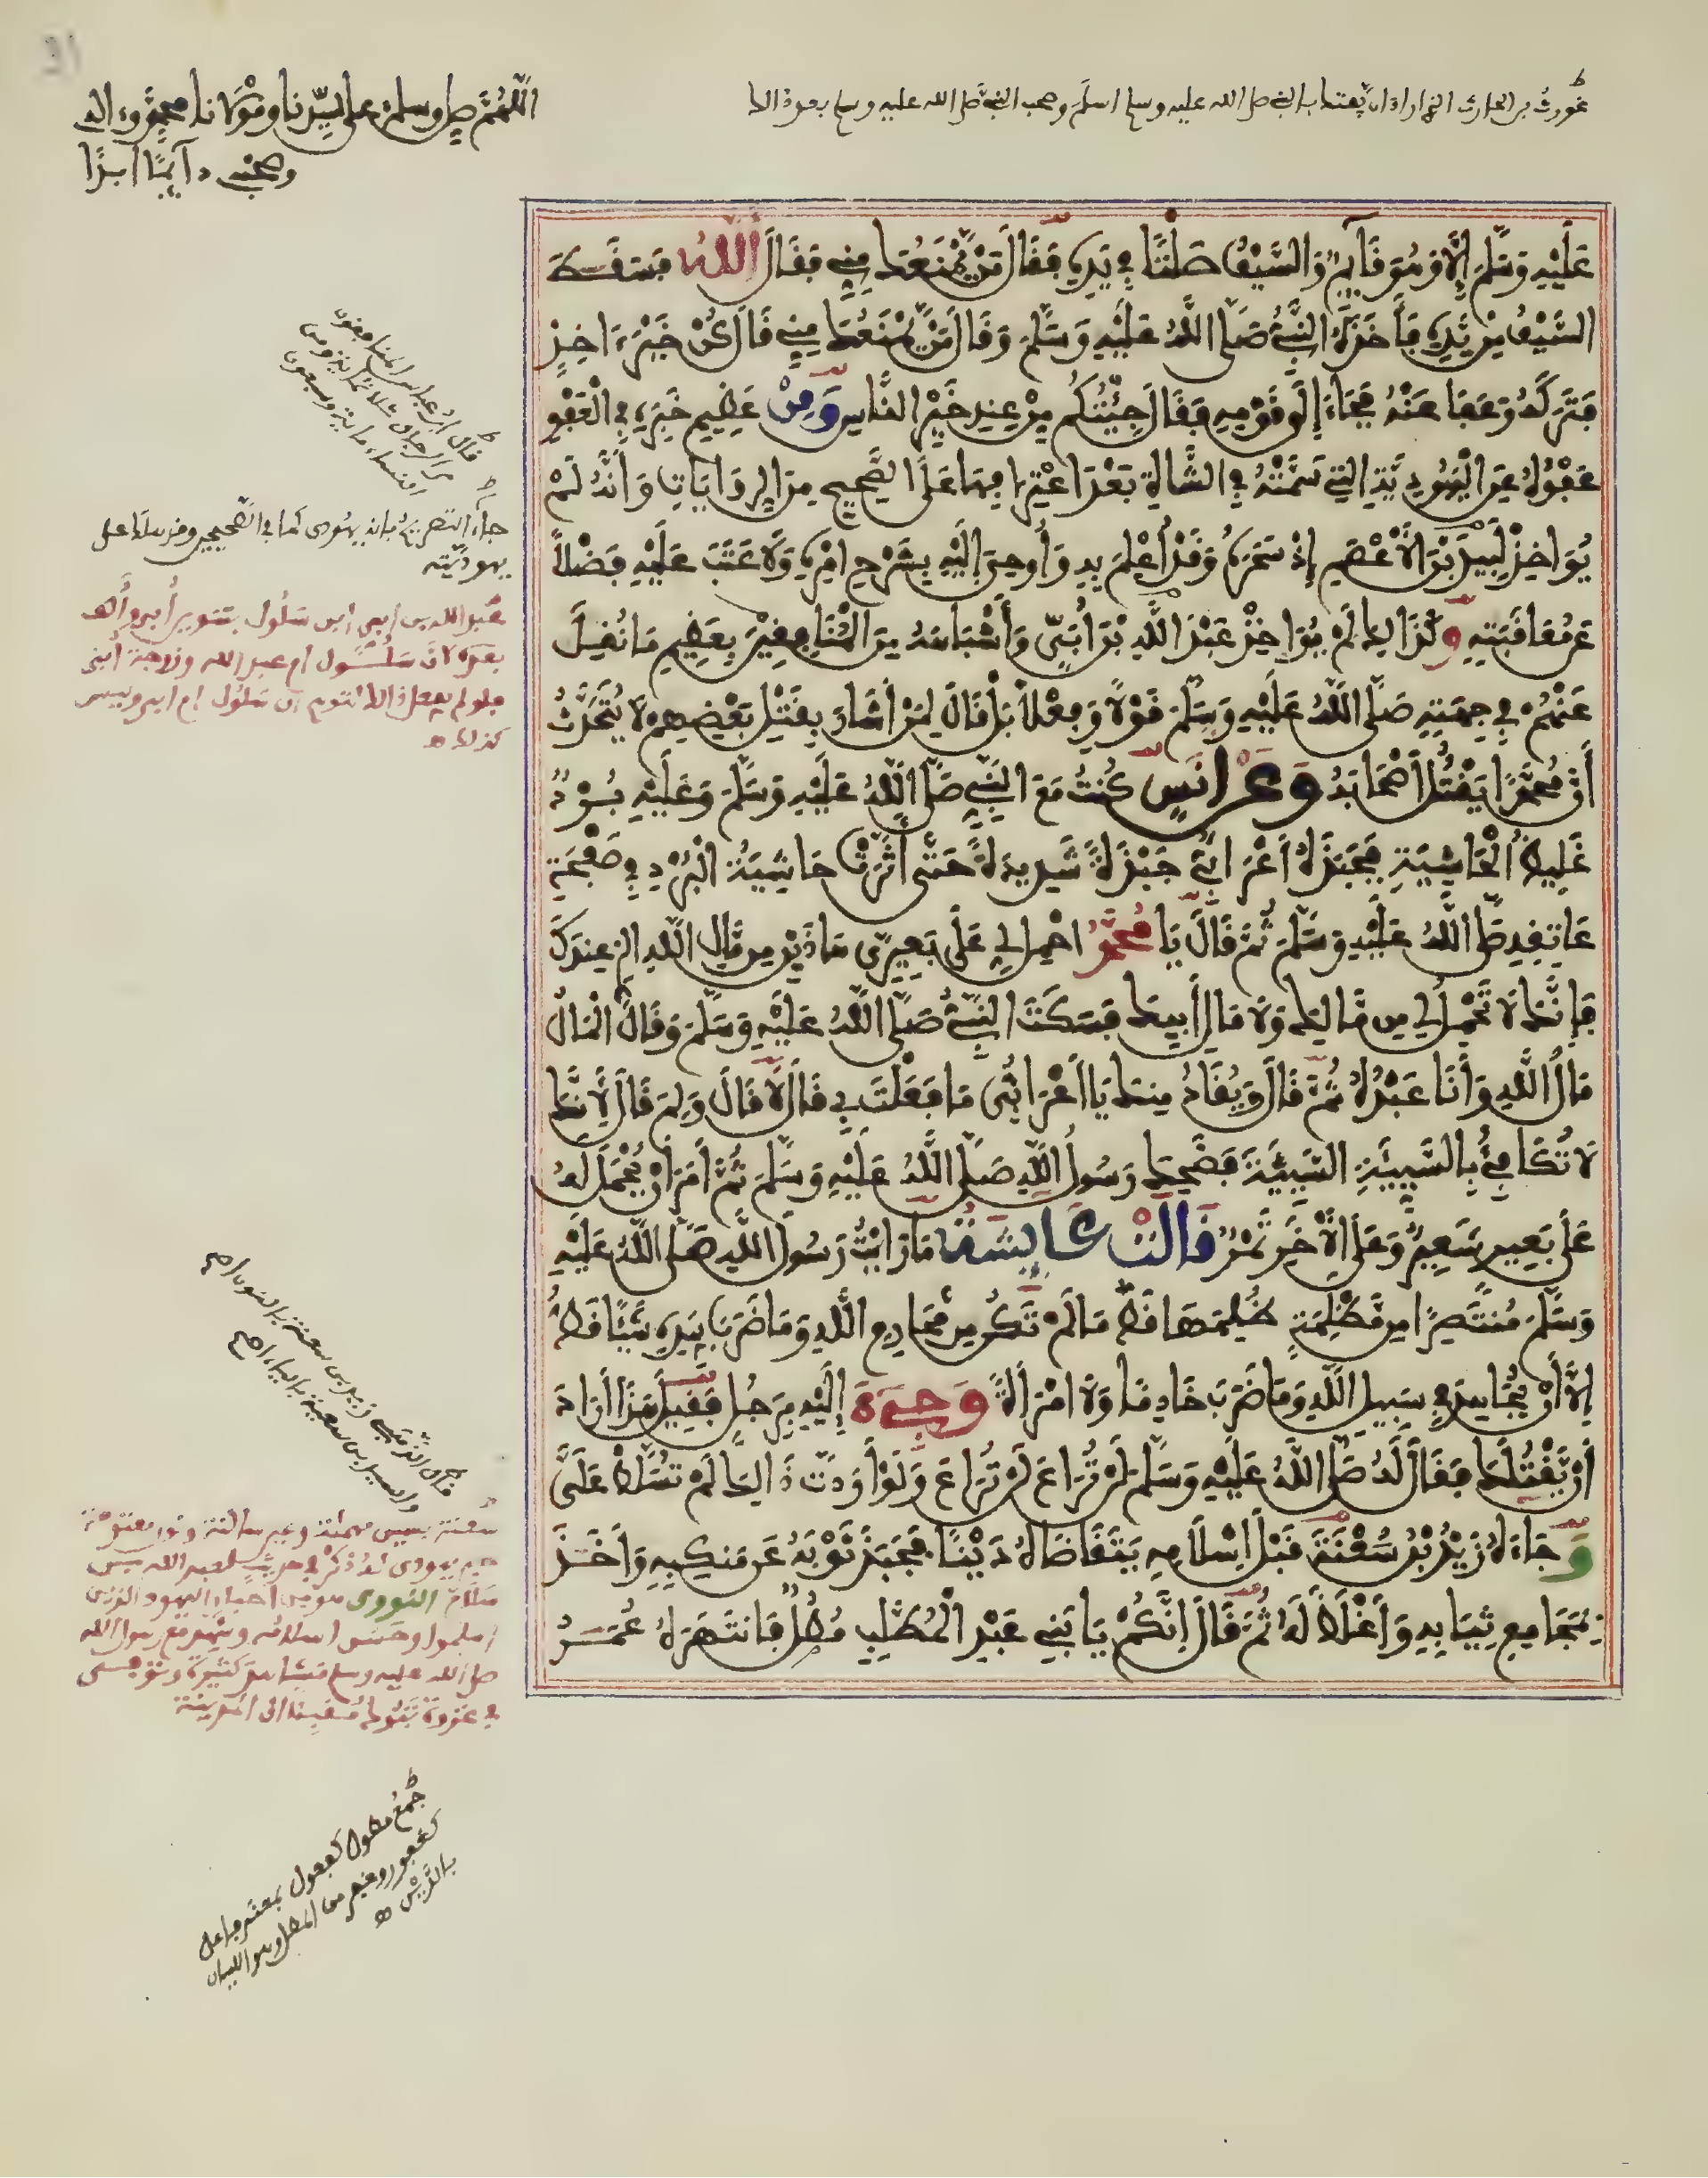 غورث بن الحارث الذي اراد ان يفتك بالنبي صلى الله عليه وسلم اسلم وصحب النبي صلى الله عليه وسلم بعد ذالك
اللهم صل وسلم على سيدنا ومولانا محمد وءاله
وصحبه دآئما ابدا
عَلَيْهِ وَسَلَّمَ إِلَّا وَهُوَ قَآئِمٌ وَالسَّيْفُ صَلْتًا فِي يَدِهِ فَقَالَ مَنْ يَّمْنَعُكَ مِنِّي فَقَالَ اللَّهُ فَسَقَطَ
السَّيْفُ مِنْ يَّدِهِ فَأَخَذَهُ النَّبِيُّ صَلَّى اللَّهُ عَلَيْهِ وَسَلَّمَ وَقَالَ مَنْ يَّمْنَعُكَ مِنِّي قَالَ كُنْ خَيْرَ ءَاخِذٍ
فَتَرَكَهُ وَعَفَا عَنْهُ فَجَاءَ إِلَى قَوْمِهِ فَقَالَ جِئْتُكُم مِّنْ عِندِ خَيْرِ النَّاسِ وَمِنْ عَظِيمِ خَبَرِهِ فِي الْعَفْوِ
عَفْوُهُ عَنِ الْيَهُودِيَّةِ الَّتِي سَمَّتْهُ فِي الشَّاةِ بَعْدَ اعْتِرَافِهَا عَلَى الصَّحِيحِ مِنَ الرِّوَايَاتِ وَأَنَّهُ لَمْ
يُوَاخِذْ لَبِيدَ بْنَ الْأَعْصَمِ إِذْ سَحَرَهُ وَقَدْ أُعْلِمَ بِهِ وَأُوحِيَ إِلَيْهِ بِشَرْحِ امْرِهِ وَلَا عَتَبَ عَلَيْهِ فَضْلًا
عَن مُّعَاقَبَتِهِ وَكَذَالِكَ لَمْ يُوَاخِذْ عَبْدَ اللَّهِ بْنَ أُبَيٍّ وَأَشْبَاهَهُ مِنَ الْمُنَافِقِينَ بِعَظِيمِ مَا نُقِلَ
عَنْهُمْ فِي جِهَتِهِ صَلَّى اللَّهُ عَلَيْهِ وَسَلَّمَ قَوْلًا وَفِعْلًا بَلْ قَالَ لِمَنْ أَشَارَ بِقَتْلِ بَعْضِهِمْ لَا يُتَحَدَّثُ
أَنَّ مُحَمَّدًا يَقْتُلُ أَصْحَابَهُ وَعَنْ انَسٍ كُنتُ مَعَ النَّبِيِّ صَلَّى اللَّهُ عَلَيْهِ وَسَلَّمَ وَعَلَيْهِ بُرْدٌ
غَلِيظُ الْحَاشِيَةِ فَجَبَذَهُ أَعْرَابِيٌّ جَبْذَةً شَدِيدَةً حَتَّى أَثَّرَتْ حَاشِيَةُ الْبُرْدِ فِي صَفْحَةِ
عَاتِقِهِ صَلَّى اللَّهُ عَلَيْهِ وَسَلَّمَ ثُمَّ قَالَ يَا مُحَمَّدُ احْمِل لِّي عَلَى بَعِيرَيَّ هَاذَيْنِ مِن مَّالِ اللَّهِ الَّذِي عِندَكَ
فَإِنَّكَ لَا تَحْمِلُ لِي مِن مَّالِكَ وَلَا مَالِ أَبِيكَ فَسَكَتَ النَّبِيُّ صَلَّى اللَّهُ عَلَيْهِ وَسَلَّمَ وَقَالَ الْمَالُ
مَالُ اللَّهِ وَأَنَا عَبْدُهُ ثُمَّ قَالَ وَيُقَادُ مِنكَ يَا أَعْرَابِيُّ مَا فَعَلْتَ بِي قَالَ لَا قَالَ وَلِمَ قَالَ لِأَنَّكَ
لَا تُكَافِئُ بِالسَّيِّئَةِ السَّيِّئَةَ فَضَحِكَ رَسُولُ اللَّهِ صَلَّى اللَّهُ عَلَيْهِ وَسَلَّمَ ثُمَّ أَمَرَ أَنْ يُّحْمَلَ لَهُ
عَلَى بَعِيرٍ شَعِيرٌ وَعَلَى الْآخَرِ تَمْرٌ قَالَتْ عَائِشَةُ مَا رَايْتُ رَسُولَ اللَّهِ صَلَّى اللَّهُ عَلَيْهِ
وَسَلَّمَ مُنتَصِرًا مِن مَّظْلِمَةٍ ظُلِمَهَا قَطُّ مَا لَمْ تَكُن مِّن مَّحَارِمِ اللَّهِ وَمَا ضَرَبَ بِيَدِهِ شَيْئًا قَطُّ
إِلَّا أَنْ يُّجَاهِدَ فِي سَبِيلِ اللَّهِ وَمَا ضَرَبَ خَادِمًا وَلَا امْرَأَةً وَجِيءَ إِلَيْهِ بِرَجُلٍ فَقِيلَ هَذَا أَرَادَ
أَنْ يَّقْتُلَكَ فَقَالَ لَهُ صَلَّى اللَّهُ عَلَيْهِ وَسَلَّمَ لَن تُرَاعَ لَن تُرَاعَ وَلَوْ أَرَدتَّ ذَالِكَ لَمْ تُسَلَّطْ عَلَيَّ
وَجَاءَهُ زَيْدُ بْنُ سُعْنَةَ قَبْلَ إِسْلَامِهِ يَتَقَاضَاهُ دَيْنًا فَجَبَذَ ثَوْبَهُ عَن مَنكِبِهِ وَأَخَذَ
بِمَجَامِعِ ثِيَابِهِ وَأَغْلَظَ لَهُ ثُمَّ قَالَ إِنَّكُمْ يَا بَنِي عَبْدِ الْمُطَّلِبِ مُطُلٌ فَانتَهَرَهُ عُمَرُ
قال ابن عباس المنافقون
من الرجال ثلاثمائة ومن
النساء مائة وسبعون
جاء التصريح بانه يهودي كما في الصحيحين
يهوديته
عبد الله بن ابي ابن سلول بتنوين أبي وألف
بعده لان سلول ام عبد الله وزوجة أبي
فلو لم يفعل ذالك لتوهم ان سلول ام ابي وليس
كذلك ه
قال الذهبي زيد بن سعنة بالنون اصح
سعنة بسين مهملة وعين ساكنة ونون مفتوحة
يهودي له ذكر في حديث لعبد الله بن
سلام النووي هو من احبار اليهود الذين
اسلموا وحسن اسلامه وشهد مع رسول الله
صلى الله عليه وسلم مشاهد كثيرة وتوفي
في غزوة تبوك مقبلا الى المدينة
جمع مطول كفعول بمعنى فاعل
كغفور وغيره من المطل وهو الليان
بالدين ه